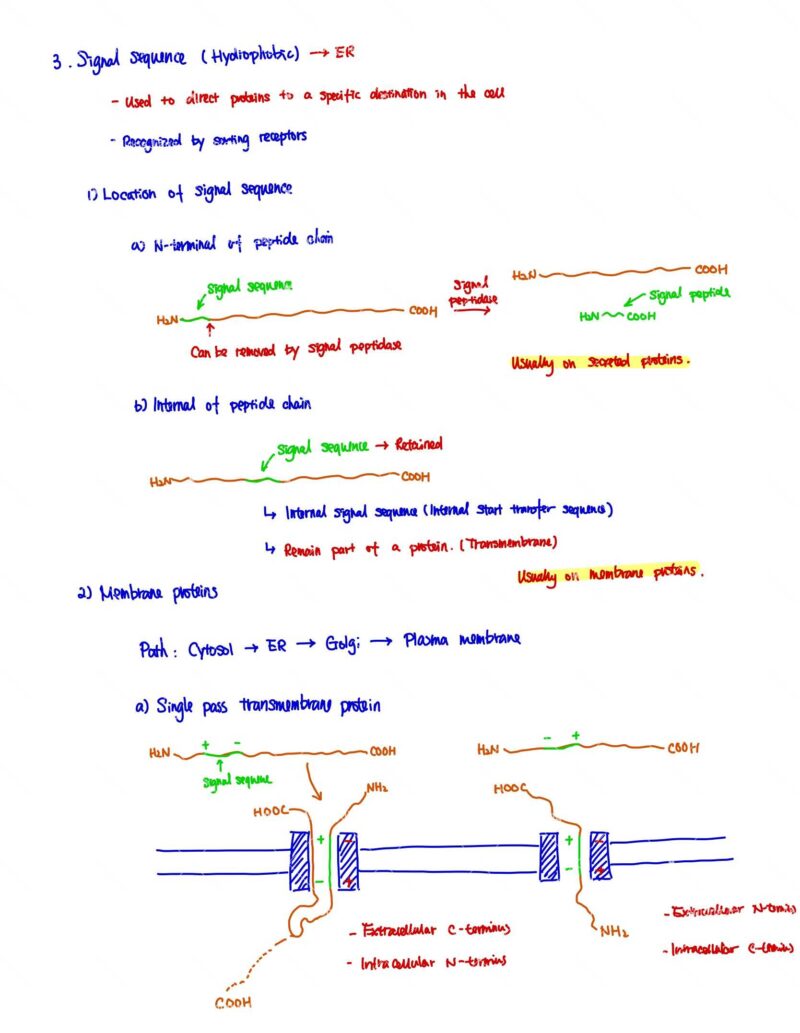 3. Signal sequence (Hydrophobic) → ER
- Used to direct proteins to a specific destination in the cell
- Recognized by sorting receptors
1) Location of signal sequence
a) N-terminal of peptide chain
Signal sequence
H₂N COOH
Can be removed by signal peptidase
Signal peptidase
H₂N COOH
Signal peptide
H₂N COOH
Usually on secreted proteins.
b) Internal of peptide chain
Signal sequence → Retained
H₂N COOH
↳ Internal signal sequence (Internal start transfer sequence)
↳ Remain part of a protein. (Transmembrane)
Usually on membrane proteins.
2) Membrane proteins
Path: Cytosol → ER → Golgi → Plasma membrane
a) Single pass transmembrane protein
H₂N + - COOH
Signal sequence
H₂N - + COOH
HOOC NH₂
+ -
- +
COOH
- Extracellular C-terminus
- Intracellular N-terminus
HOOC
+ -
- +
NH₂
- Extracellular N-terminus
- Intracellular C-terminus